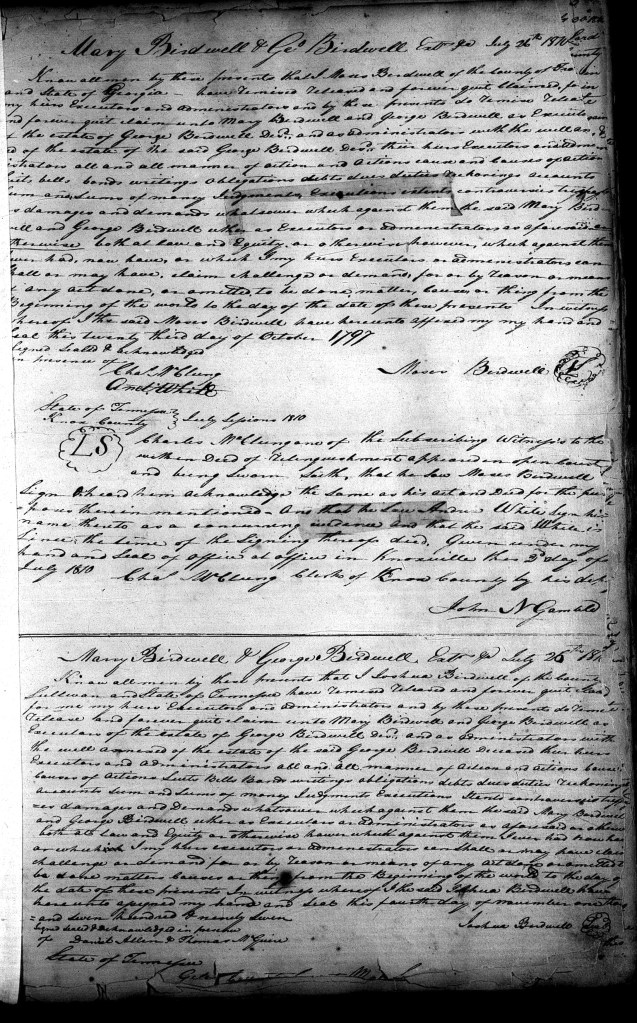 Mary Birdwell & Geo Birdwell Exrs &c July 26th 1810
Know all men by these presents that I Moses Birdwell of the County of
and State of Georgia have Remised Released and forever quit claimed, for
my heirs Executors and administrators and by these presents do Remise Release
and forever quit claim unto Mary Birdwell and George Birdwell as Executors
of the estate of George Birdwell Decd; and as administrators with the will
of the estate of the said George Birdwell Decd, their heirs Executors and
administrators all and all manner of action and actions cause and causes of action
Suits, bills bonds writings obligations debts dues duties reckonings accounts
Sum and Sums of money Judgments, Executions extents controversies trespasses
damages and demands whatsoever which against them the said Mary Bird
well and George Birdwell either as Executors or administrators as aforesaid, or
otherwise both at law and Equity or otherwise however, which against them
ever had, now have, or which I my heirs Executors or administrators can
shall or may have, claim challenge or demand, for or by reason or means
of any act done, or omitted to be done, matter, cause or thing from the
Beginning of the world to the day of the date of these presents In witness
whereof I the said Moses Birdwell have hereunto affixed my my hand and
Seal this twenty third day of October 1797
Signed Sealed & acknowledged
in presence of
Chas McClung Moses Birdwell
And. White
State of Tennessee
Knox County } July Sessions 1810
LS
Charles McClung one of the Subscribing Witnesses to the
within Deed of Relinquishment appeared in open Court
and being Sworn Saith, that he Saw Moses Birdwell
Sign & heard him acknowledge the Same as his act and Deed for the pur
poses therein mentioned. And that he Saw Andw White Sign his
name thereto as a concurring evidence and that the said White is
Since the time of the Signing thereof died. Given under my
hand and Seal of office at office in Knoxville this 2d day of
July 1810
Chas McClung Clerk of Knox County by his dep
John N Gamble
Mary Birdwell & George Birdwell Exrs &c July 26th
Know all men by these presents that I Joshua Birdwell of the County
Sullivan and State of Tennessee have Remised Released and forever quit
for me my heirs Executors and administrators and by these presents do Remise
Release and forever quit claim unto Mary Birdwell and George Birdwell as
Executors of the estate of George Birdwell Decd, and as administrators with
the will annexed of the estate of the said George Birdwell Deceased their heirs
Executors and Administrators all and all manner of Action and actions cause
causes of Actions Suits Bills Bonds writings obligations debts dues duties Reckonings
accounts Sum and Sums of money Judgments Executions Extents controversies
damages and Demands whatsoever which against them the said Mary Birdwell
and George Birdwell either as Executors or administrators as aforesaid or other
both at law and Equity or otherwise however which against them I ever had now have
or which I my heirs executors or administrators can Shall or may have claim
challenge or demand for or by Reason or means of any act done or omitted
be done matters causes or thing from the Beginning of the world to the day of
the date of these presents In witness whereof I the said Joshua Birdwell have
hereunto affixed my hand and Seal this fourth day of November one thous
= and Seven hundred & ninety Seven
Signed Sealed & acknowledged in presence
of Daniel Allen & Thomas McGuire
Joshua Birdwell
State of Tennessee